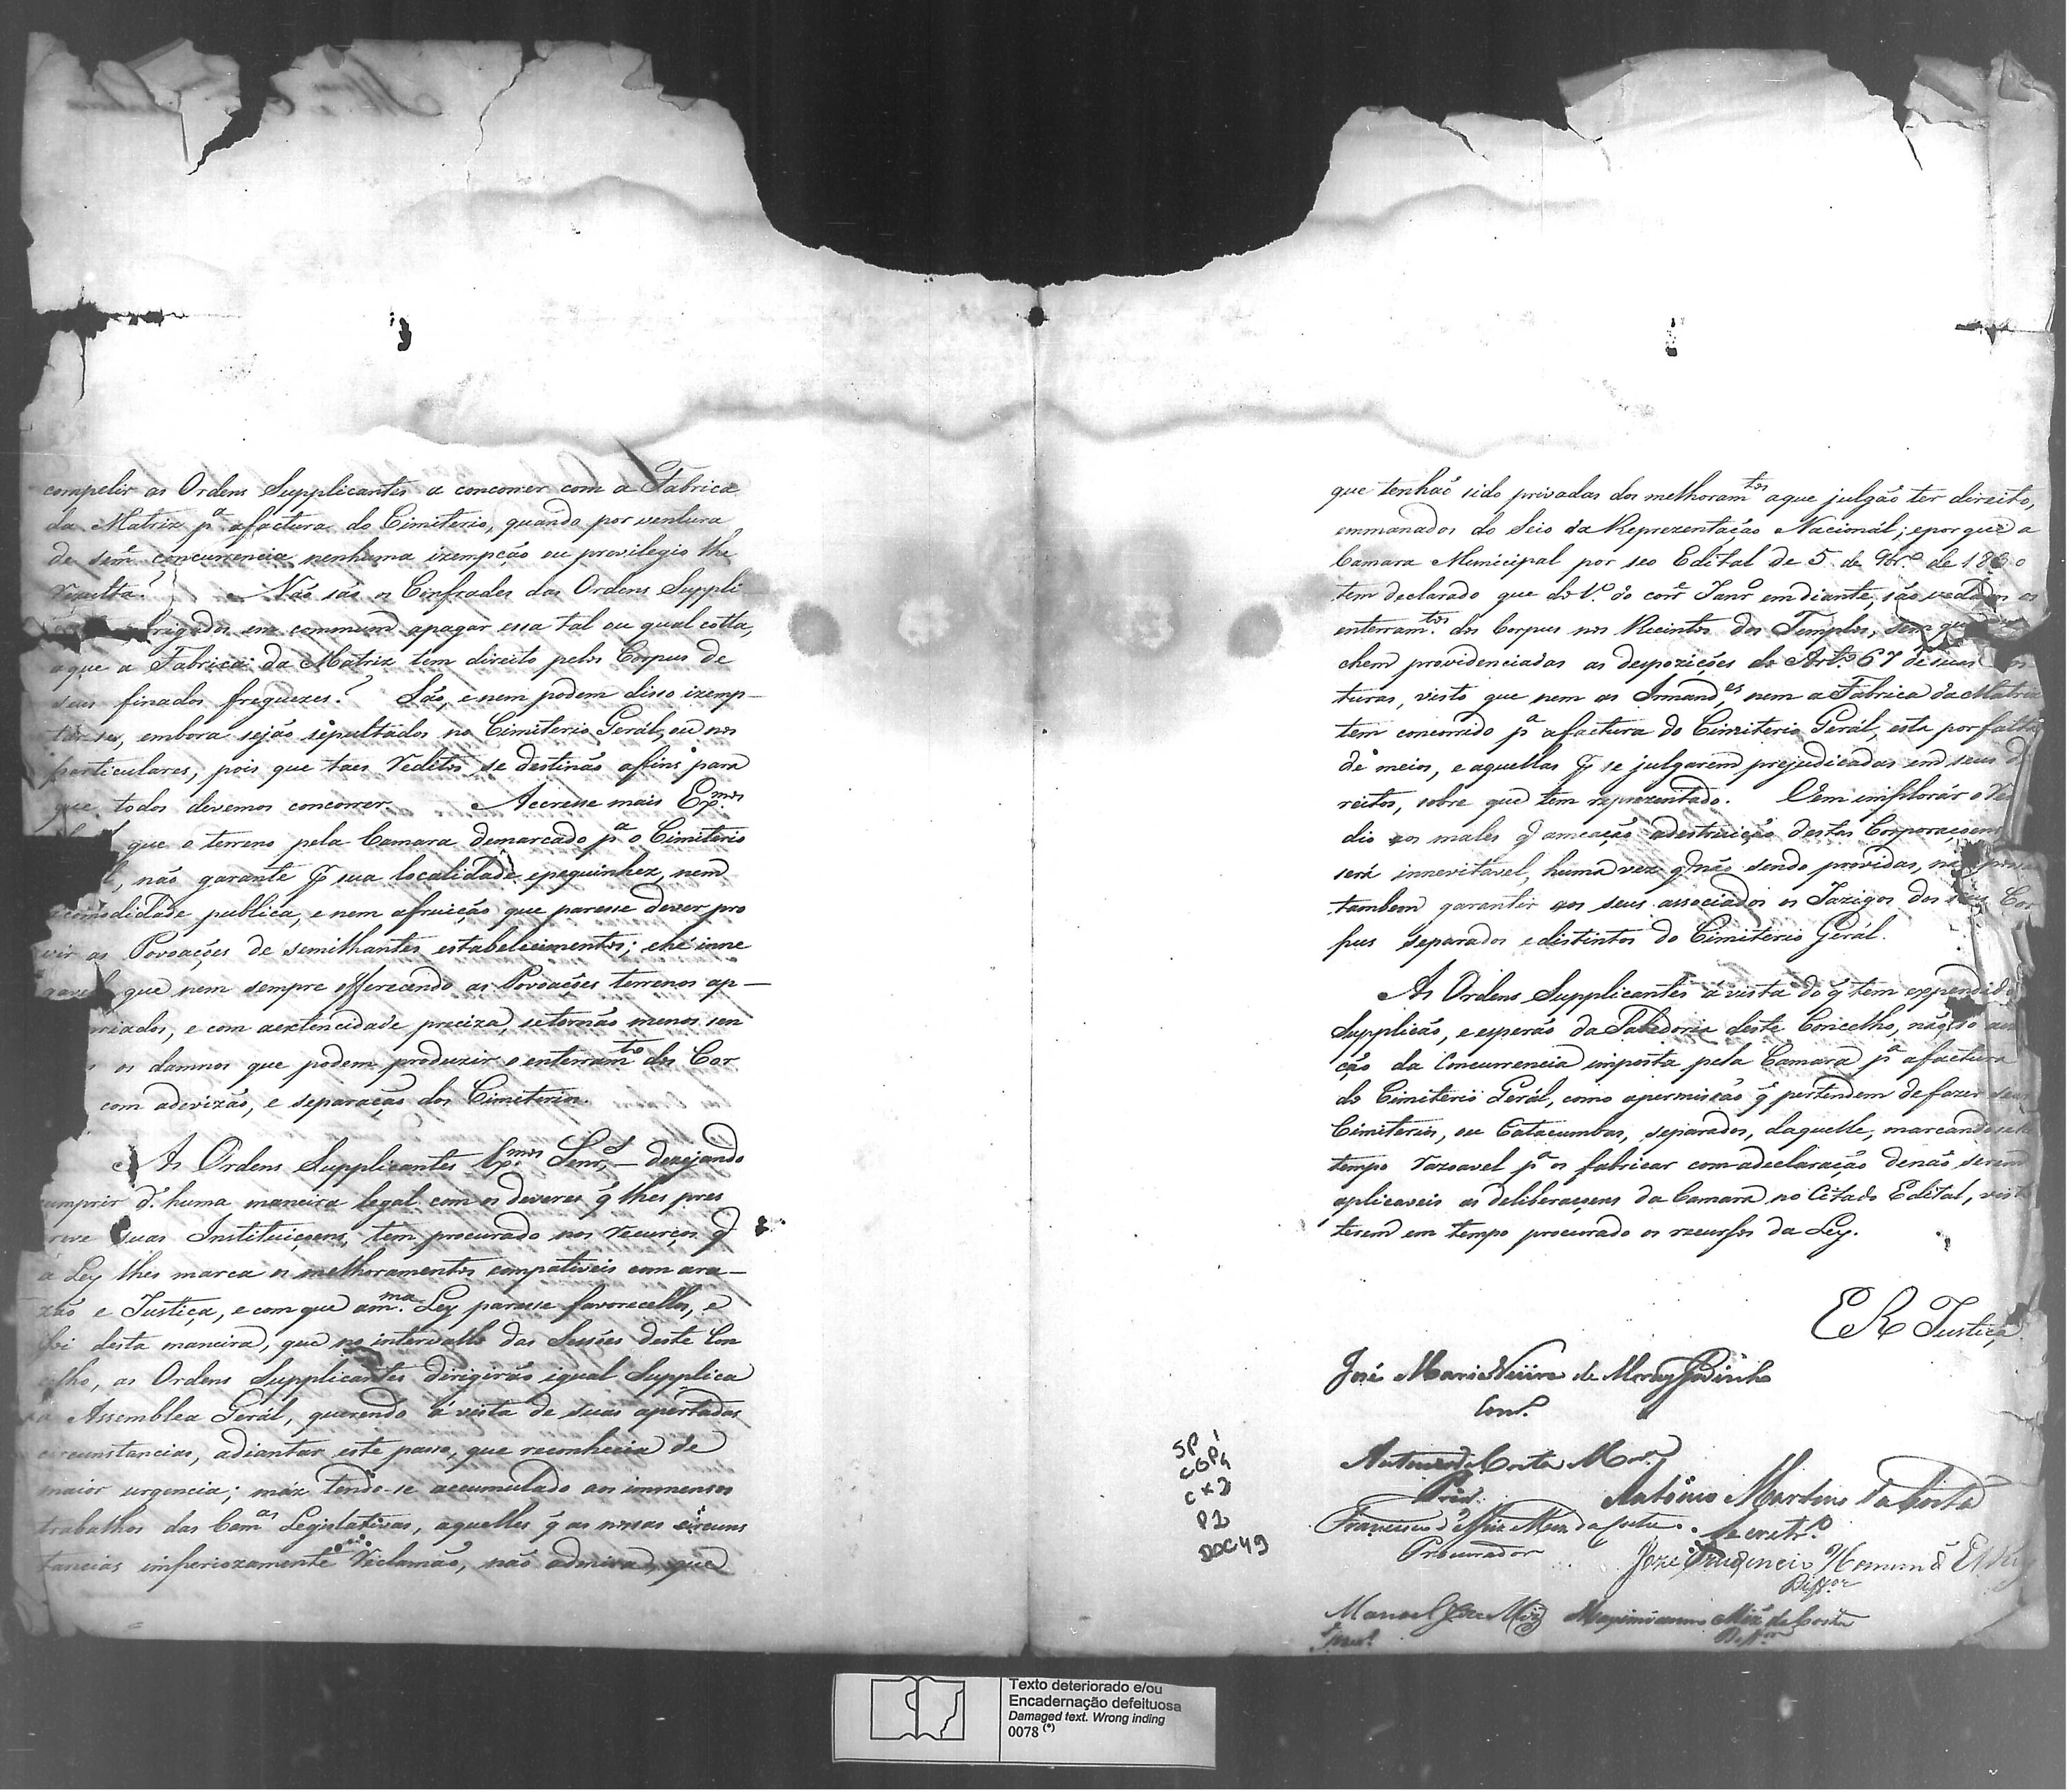 compelir as Ordens Supplicantes a concorrer com a Fabrica
da Matriz pª afactura do Cimiterio, quando por ventura
de sem.e concurrencia nenhuma izempção ou previlegio lhe
rezulta? Não são os Confrades das Ordens Suppli
brigados em commum apagar essa tal ou qual cotta,
aque a Fabrica da Matriz tem direito pelos Corpus de
seus finados freguezes? São, e nem podem disso izemp-
tarse, embora sejão sepultados no Cimiterio Gerál, ou nos
particulares, pois que taes reditos se destinão afins para
que todos devemos concorrer Accresse mais Ex.mos
que o terreno pela Camara demarcado pª o Cimiterio
l, não garante p sua localidade epequinhez, nem
acomodidade publica, e nem afruição que paresse dever pro
vir as Povoações de semilhantes estabelecimentos; ehé inne
gavel que nem sempre offerecendo as Povoações terrenos ap-
priados, e com aextencidade preciza, setornão menos sen
os damnos que podem produzir o enterram.to dos Cor
com adevizão, e separação dos Cimiterios.
As Ordens Supplicantes Ex.mos Senr.s - dezejando
cumprir d'huma maneira legal com os deveres q̃ lhes pres
creve suas Instituiçoens, tem procurado nos recurços q̃
a Ley lhes marca os melhoramentos compativeis com ara-
zão e Justiça, e com que am.ma Ley paresse favorecellos, e
foi desta maneira, que no intervallo das Sessões deste Con
celho, as Ordens Supplicantes dirigirão igual Supplica
a Assemblea Gerál, querendo á vista de suas apertadas
circunstancias, adiantar este passo, que reconhecia de
maior urgencia; máz tendo-se accumulado aos immensos
trabalhos das Cam.as Legislativas, aquelles q̃ as nossas circuns
tancias imperiozamente reclamão, não admira, que
que tenhão sido privadas dos melhoram.tos aque julgão ter direito,
emmanados do Seio da Reprezentação Nacionál; eporque a
Camara Municipal por seo Edital de 5 de 9br.º de 1830
tem declarado que do 1.º do corr.e Janr.º emdiante, são vedados os
enterram.tos dos Corpus nos Recintos dos Templos, sem que
chem providenciadas as despozições do Art.º 67 de suas
turas, visto que nem as Irmand.es, nem a Fabrica da Matriz
tem concorrido pª afactura do Cimiterio Gerál, esta por falta
de meios, e aquellas p se julgarem prejudicadas em seus d
reitos, sobre que tem reprezentado. Vem implorár o Re
dio aos males q̃ ameação adestruição destas Corporaçoens
será innevitavel, huma vez q̃ não sendo providas, não
tambem garantir aos seus associados os Jazigos dos seus Cor
pus separados e distintos do Cimiterio Gerál.
As Ordens Supplicantes á vista do q̃ tem expendido
Supplicão, e esperão da Sabedoria deste Concelho, não só
ção da Concurrencia imposta pela Camara pª afactura
do Cimiterio Gerál, como apermissão q̃ pertendem defazer seus
Cimiterios, ou Catacumbas, separados, daquelle, marcandoselhe
tempo razoavel pª os fabricar com adeclaração denão serem
aplicaveis as deliberaçoens da Camara no Citado Edital, visto
terem em tempo procurado os recursos da Ley.
E R Justiça
José Maria de Godinho
Antonio da Costa Mor.ª
Antonio Martins da Costa
Secretr.º
Procurador
Joze Prudencio Homem d
Manoel Joze Miz
Maximianno Miz da Costa
SP 1
CGP4
CX2
P2
DOC49
Texto deteriorado e/ou
Encadernação defeituosa
Damaged text. Wrong inding
0078 (*)